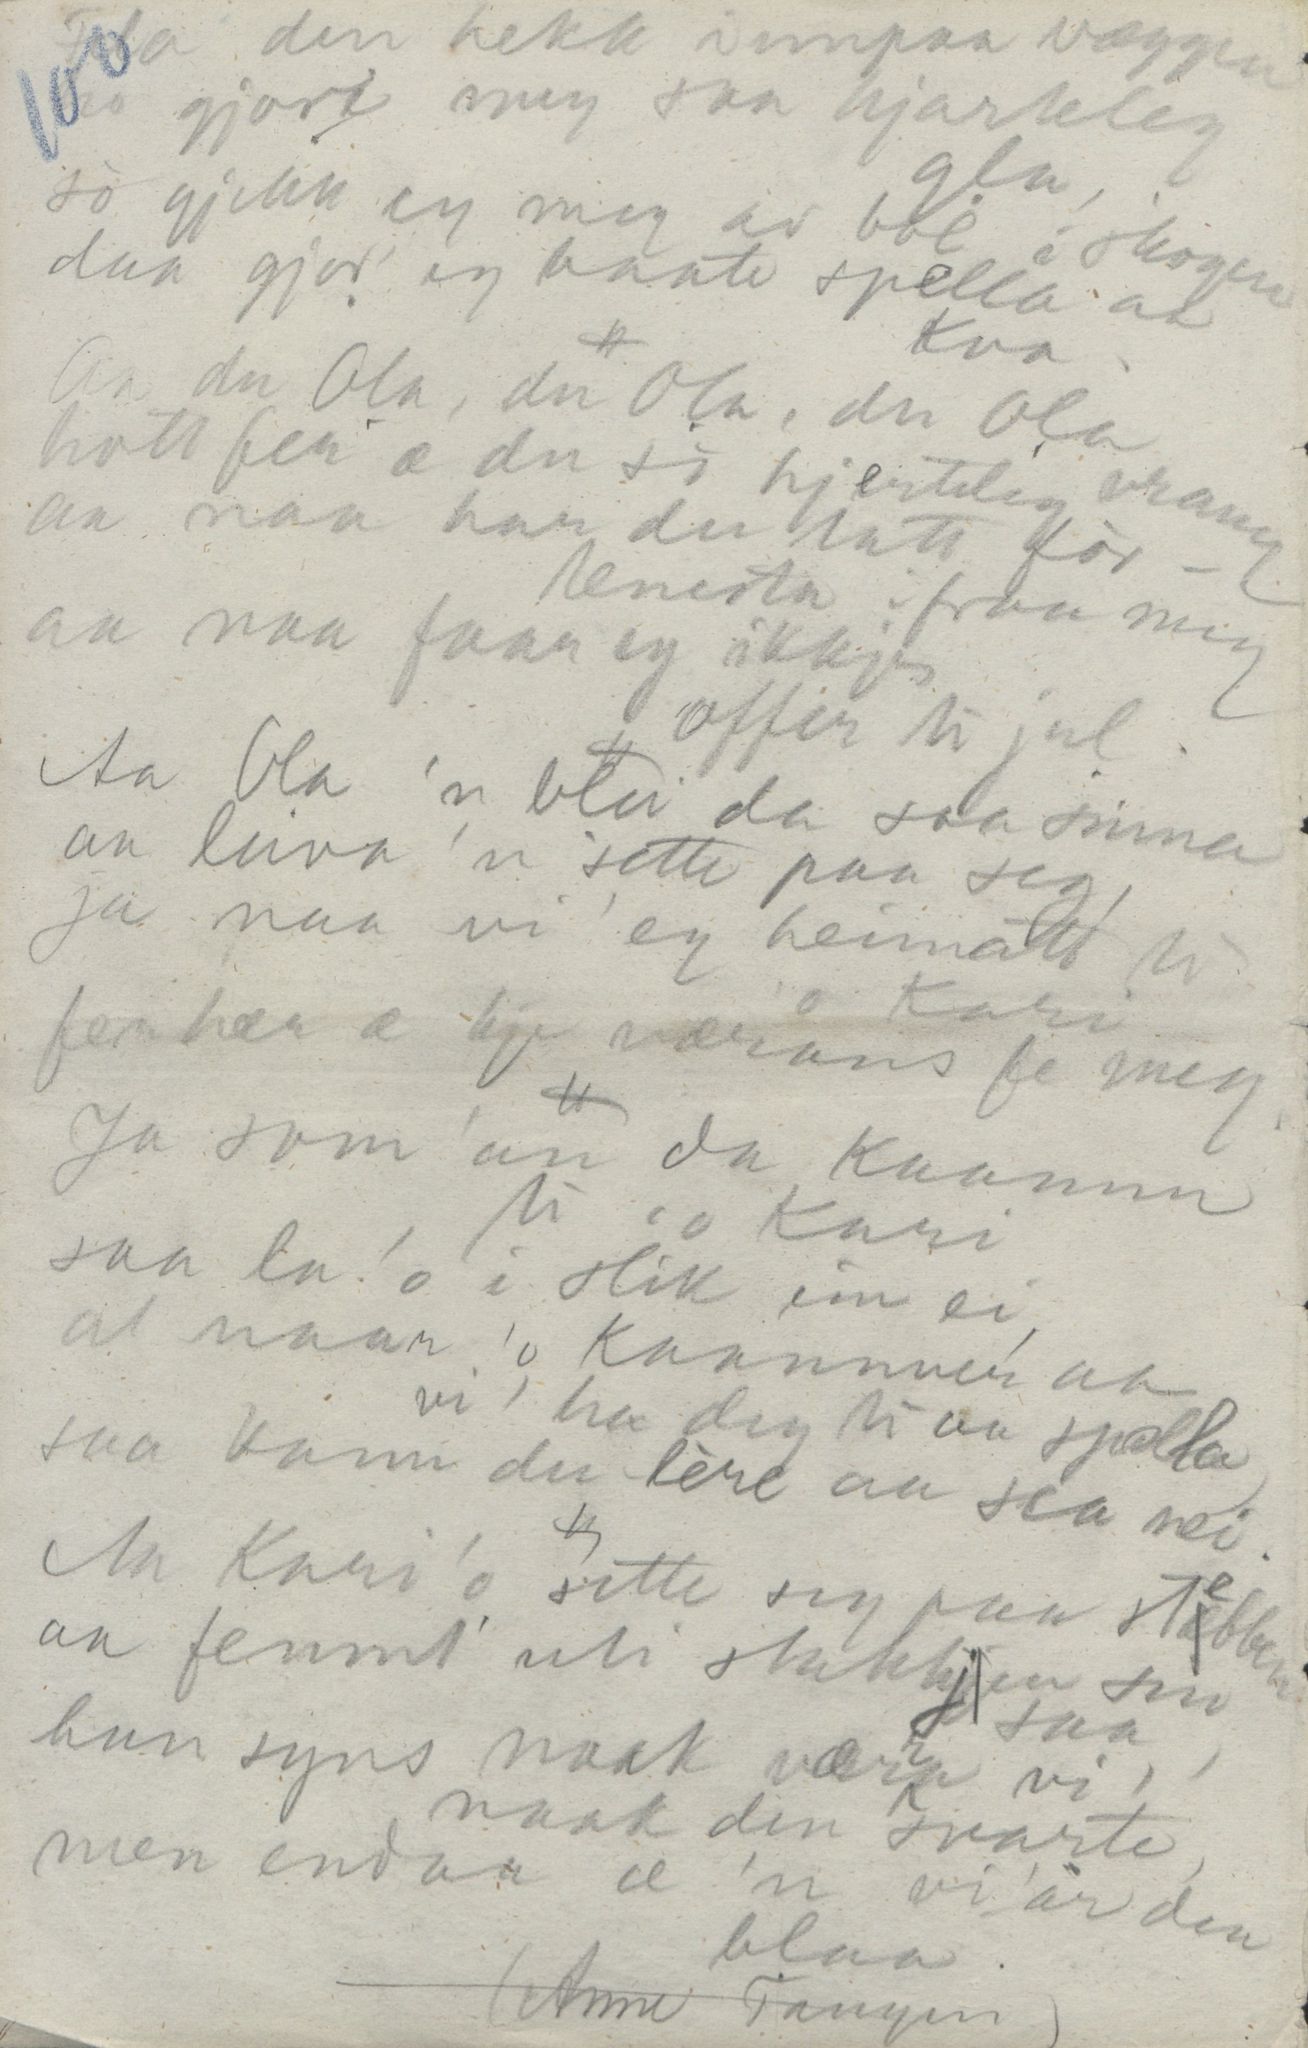 100
Fela den hekk innpaa væggen
ho gjord meg saa hjarteleg
gla,
så gjekk eg meg av bol i skogen
daa gjor' eg baate spella aa
kva.
Aa du Ola, du Ola, du Ola
hott fer æ du så hjerteleg vrang
aa naa har du tatt för-
tenesta ifraa meg
aa naa faar eg ikkje
offer ti jul.
Aa Ola 'n blei da saa sinna
aa luva 'n sette paa seg,
ja naa vi' eg heimatt ti
'o Kari
fer her æ kje værans fe meg.
Ja som 'an da kaamm
ti 'o Kari
saa la 'o i slik ein ei,
at naar 'o kaammer aa
vi' ha deg ti aa spella
saa kann du lère aa sea nei.
Aa Kari 'o sette seg paa stebben
aa femnt' uti stakkjen sin
saa,
hun syns naak være vi'
naak den svarte,
men endaa æ 'n vi'ar den
blaa.
(Anne Tangen)